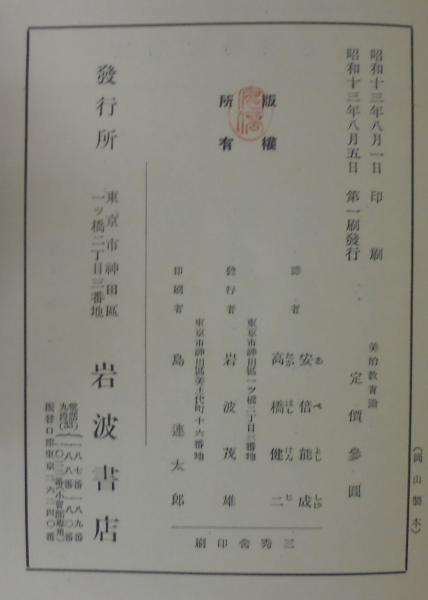 昭和十三年八月一日 印刷
昭和十三年八月五日 第一刷發行
美的教育論
定價參圓
版權所有
譯者
安倍能成
あべよししげ
高橋健二
たかはしけんじ
東京市神田區一ツ橋二丁目三番地
發行者 岩波茂雄
東京市神田區美土代町十六番地
印刷者 島連太郎
三秀舍印刷
發行所
東京市神田區
一ツ橋二丁目三番地
岩波書店
電話
九段(33)
一八七番 一八九番
振替口座東京二六二四〇番
(岡山製本)